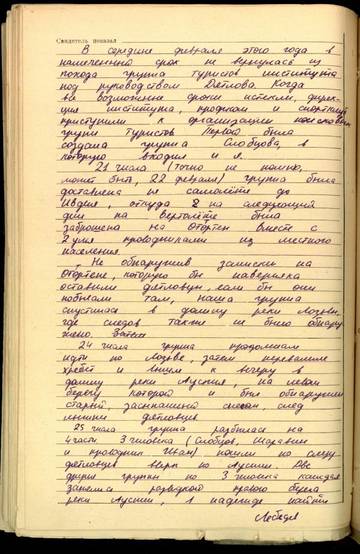 Свидетель показал
В середине февраля этого года в
намеченный срок не вернулась из
похода группа туристов института
под руководством Дятлова. Когда
все возможные сроки истекли, дирек-
ция института, профком и спортклуб
приступили к организации поисковых
групп туристов. Первой была
создана группа Слобцова, в
которую входил и я.
21 числа (точно не помню,
может быть, 22 февраля) группа была
доставлена на самолёте до
Ивделя, откуда 2 на следующий
день на вертолёте была
заброшена на Отортен вместе с
2 умя проводниками из местного
населения.
Не обнаружив записки на
Отортене, которую бы наверняка
оставили дятловцы, если бы они
побывали там, наша группа
спустилась в долину реки Лозьвы,
где следов также не было обнару
жено. Затем
24 числа группа продолжала
идти по Лозьве, затем перевалила
хребет и вышла к вечеру в
долину реки Ауспия, на левом
берегу которой и был обнаружен
старый, засыпанный снегом, след
лыжни дятловцев
25 числа группа разбилась на
4 части 3 человека (Слобцов, Шаравин
и проводник Иван) пошли по следу
дятловцев вверх по Ауспии. Две
другие группы по 3 человека каждая
занялись разведкой правого берега
реки Ауспии, в надежде найти
Лебедев